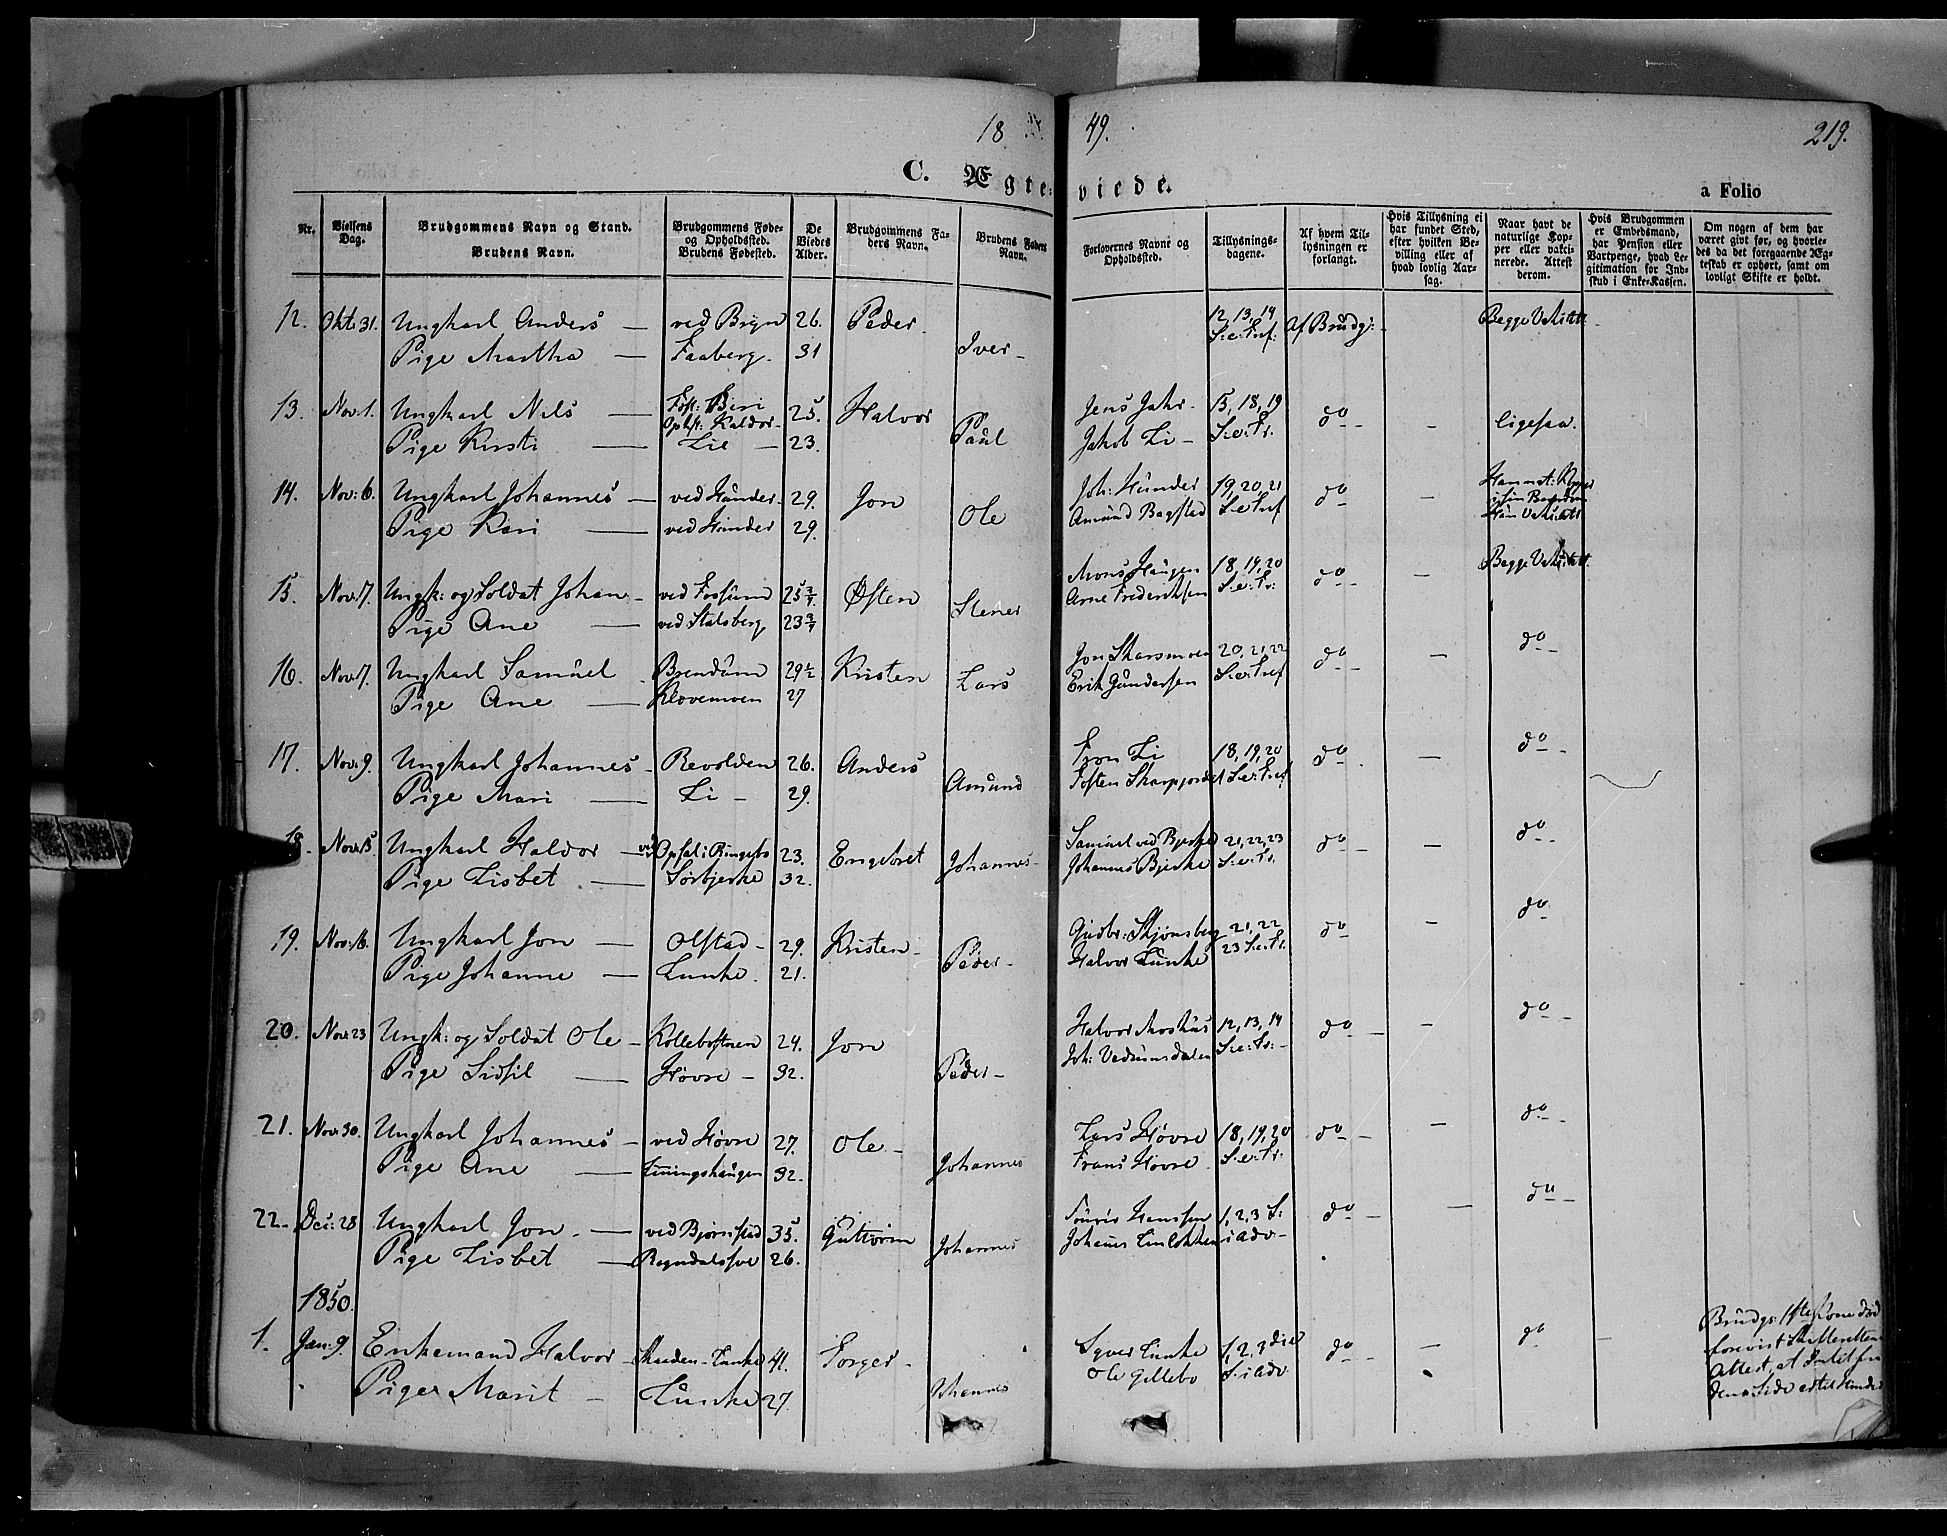 18 49. 219.
C. Ægteviede. a Folio
Nr.
Vielsens Dag.
Brudgommens Navn og Stand.
Brudens Navn.
Brudgommens Føde- og Opholdssted.
Brudens Fødested.
De Viedes Alder.
Brudgommens Faders Navn.
Brudens Faders Navn.
Forlovernes Navne og Opholdssted.
Tillysningsdagene.
Af hvem Tillysningen er forlangt.
Hvis Tillysning ei har fundet Sted, efter hvilken Bevilling eller af hvad lovlig Aarsag.
Naar havt de naturlige Kopper eller vaktinerede. Attest derom.
Hvis Brudgommen er Embedsmand, har Pension eller Vartpenge, hvad Legitimation for Indskud i Enke-Kassen.
Om nogen af dem har været givt før, og hvorledes da det foregaaende Ægteskab er ophørt, samt om lovligt Skifte er holdt.
12. Okt: 31. Ungkarl Anders — ved Bryn 26. Peder 12, 13, 14 Af Brudg: — Begge
Pige Martha — Faaberg. 31 Iver — S. e. Tref:
13. Nov: 1. Ungkarl Nils — Føst: Biri 25. Halvor Jens Jahr. 13, 18, 19 do — — ligesaa.
Pige Kirsti — Lie — 23. Paul Jakob Li — S. e. Tr.
14. Nov: 6. Ungkarl Johannes — ved Hunder 29. Jon Joh: Hunder 19, 20, 21 do —
Pige Kari — ved Hunder 29. Ole Amund Bagstad S. e. Tref
15. Nov. 7. Ungk: og Soldat Johan — ved Fossum 25 Østen Mons Haugen 18, 19, 20 do — — Begge
Pige Ane — ved Stalsberg 23 Stener Arne Frederiksen S. e. Tr:
16. Nov. 7. Ungkarl Samuel — 29½ Kristen Jon Skarsmoen 20, 21, 22 do — — do —
Pige Ane — Klovemoen 27 Lars Erik Gundersen S. e. Tref
17. Nov: 9. Ungkarl Johannes — Revolden 26. Anders Li 18, 19, 20 do — — do —
Pige Mari — Li — 29. Amund S. e. Tref
18. Nov: 15. Ungkarl Haldor — ved Opsal i Ringebo 23. Engebret Samuel ved Bjerke 21, 22, 23 do — — do —
Pige Lisbet — Sørbjerke 32. Johannes — Johannes Bjerke S. e. Tr.
19. Nov: 16. Ungkarl Jon — Olstad — 29. Kristen — Gudbr: Skjønsberg 21, 22 do — — do
Pige Johanne — Lunke. 21. Peder — Halvor Lunke 23 S. e. Tr.
20. Nov: 23 Ungk: og Soldat Ole — 24. Jon Halvor Moshus 12, 13, 14 do — — do —
Pige Sidsil — Høvre — 32. Peder — Joh: Vedumsdalen S. e. Tr: —
21. Nov: 30. Ungkarl Johannes — ved Høvre 27. Ole — Lars Høvre 18, 19, 20 do — — do —
Pige Ane — 32. Johannes Frans Høvre. S. e. Tr.
22. Dec: 28 Ungkarl Jon — ved Bjørnstad 35. Guttorm Hanssen 1, 2, 3 S: do — — do —
Pige Lisbet — 26. Johannes Johannes i Adv —
1850.
1. Jan: 9. Enkemand Halvor — Lunke 41. Torger — Syver Lunke 1, 2, 3 die do — — do —
Pige Marit — Lunke 27. Johannes Ole Gillebo S. i Adv
Brudg: 1ste Kone død
forevist Skifterettens
Attest, at Intet fra
denne Side er til Hinder